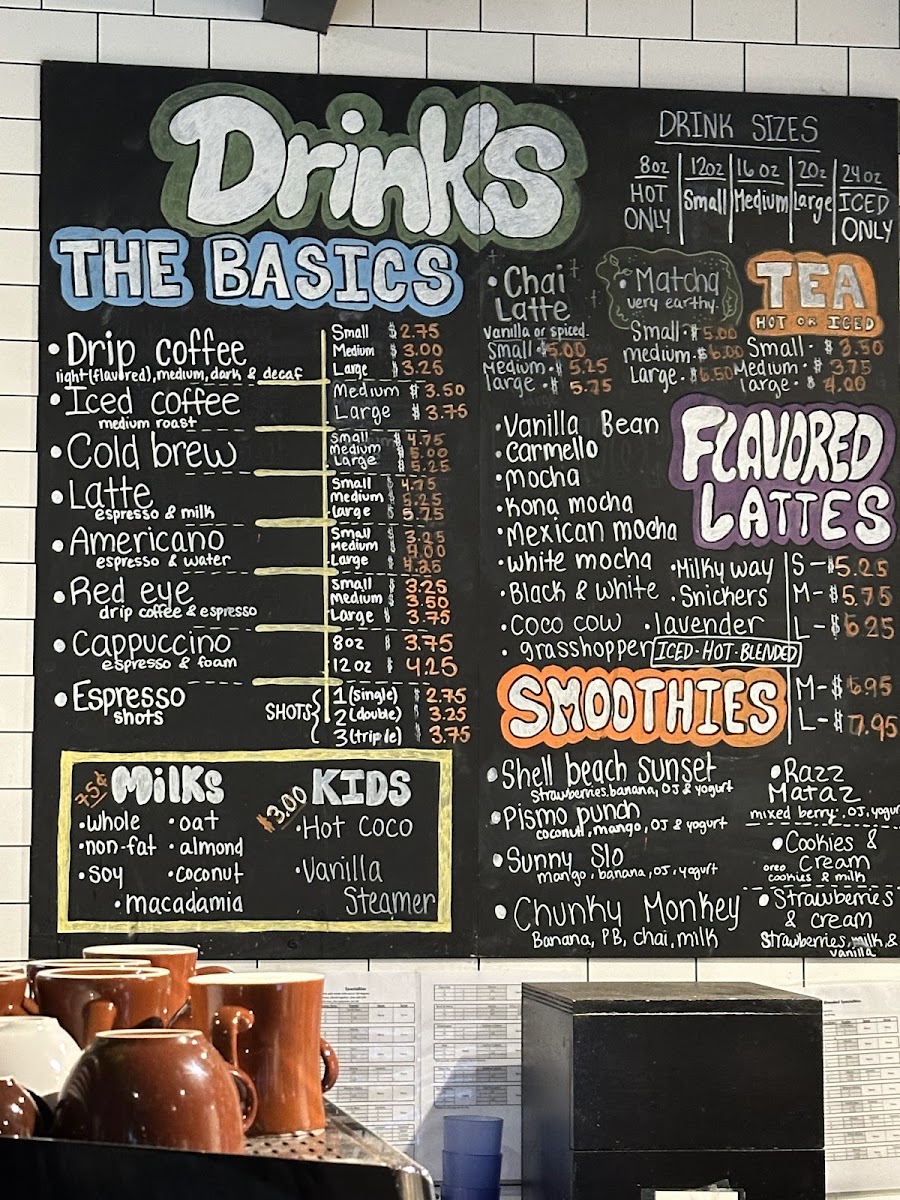 Drinks
DRINK SIZES
8oz HOT ONLY
12oz Small
16 oz Medium
20z Large
24 oz ICED ONLY
THE BASICS
• Drip coffee
light(flavored), medium, dark & decaf
Small $2.75
Medium $3.00
Large $3.25
• Iced coffee
medium roast
Medium $3.50
Large $3.75
• Cold brew
Small $4.75
medium 5.00
Large $5.25
• Latte
espresso & milk
Small $4.75
medium 5.25
large $5.75
• Americano
espresso & water
Small $3.25
Medium 4.00
Large $4.25
• Red eye
drip coffee & espresso
Small $3.25
medium $3.50
Large $3.75
• Cappuccino
espresso & foam
8oz $3.75
12oz $4.25
• Espresso
shots
SHOTS {
1 (single) $2.75
2 (double) $3.25
3 (triple) $3.75
75¢ Milks
• whole • oat
• non-fat • almond
• soy • coconut
• macadamia
$3.00 KIDS
• Hot coco
• Vanilla
Steamer
• Chai
Latte
vanilla or spiced
Small • $5.00
Medium • $5.25
large • $5.75
• Matcha
very earthy.
Small • $5.00
medium • $6.00
Large • $6.50
TEA
HOT OR ICED
Small • $3.50
Medium • $3.75
large • $4.00
FLAVORED
LATTES
• Vanilla Bean
• carmello
• mocha
• Kona mocha
• Mexican mocha
• white mocha • Milky way
• Black & white • Snickers
• coco cow • lavender
• grasshopper ICED • HOT • BLENDED
S - $5.25
M - $5.75
L - $6.25
SMOOTHIES
M - $6.95
L - $7.95
• Shell beach sunset
strawberries, banana, OJ & yogurt
• Pismo punch
coconut, mango, OJ & yogurt
• Sunny Slo
mango, banana, OJ, yogurt
• Chunky Monkey
Banana, PB, chai, milk
• Razz
Mataz
mixed berry, OJ, yogurt
• Cookies &
cream
oreo cookies & milk
• Strawberries
& cream
Strawberries, milk, &
vanilla